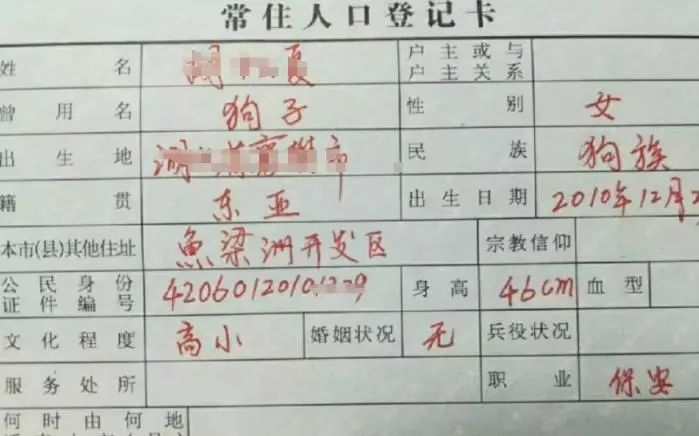 常住人口登记卡
姓名 夏 户主或与户主关系
曾用名 狗子 性别 女
出生地 市 民族 狗族
籍贯 东亚 出生日期 2010年12月
本市(县)其他住址 鱼梁洲开发区 宗教信仰
公民身份证件编号 42060120101229 身高 46cm 血型
文化程度 高小 婚姻状况 无 兵役状况
服务处所 职业 保安
何时由何地